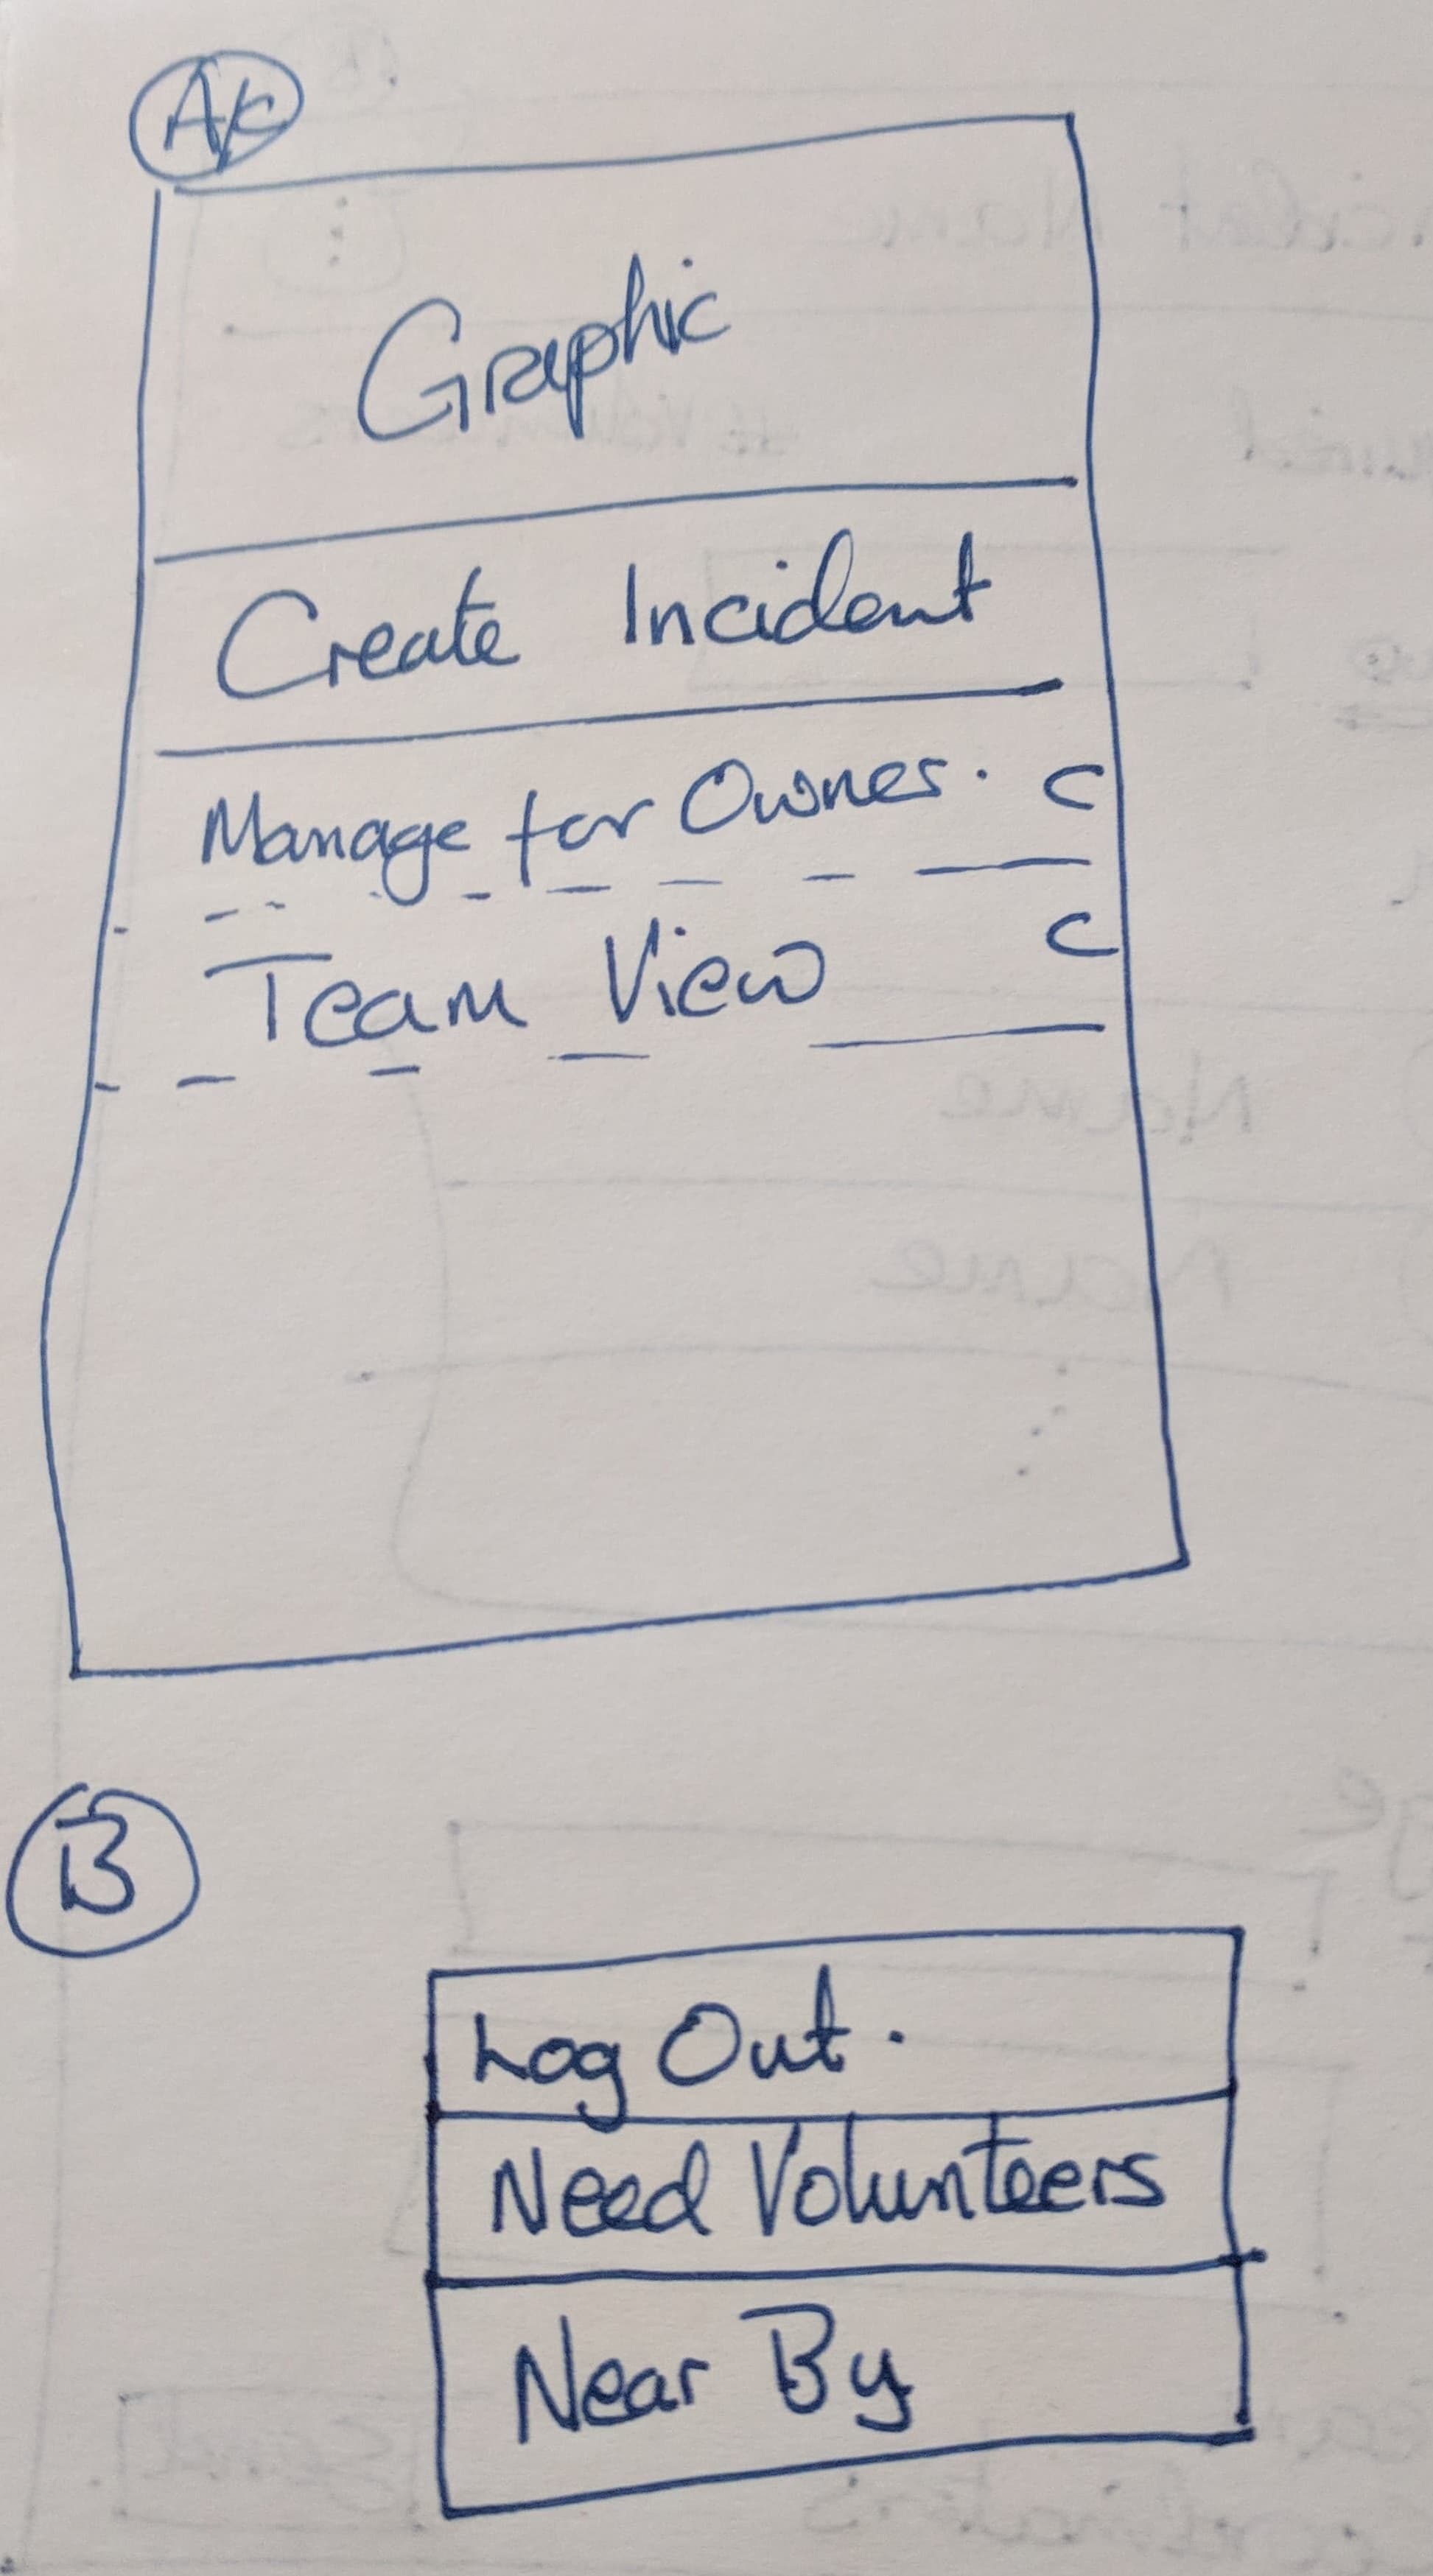 A/C
Graphic
Create Incident
Manage for Owner. C
Team View C
B
Log Out.
Need Volunteers
Near By